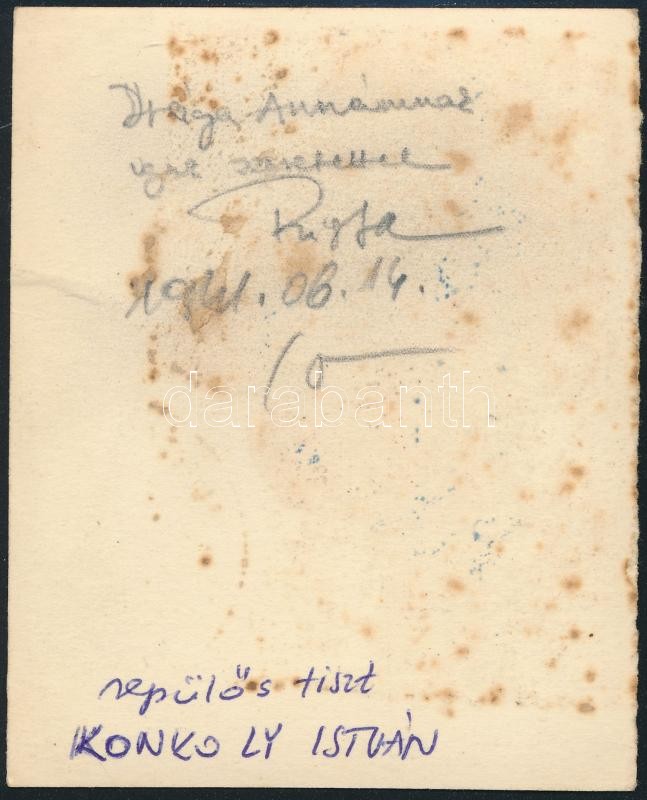 Drága Annámnak
igaz szeretettel
1941. 06. 14.
darabanth
repülős tiszt
KONKOLY ISTVÁN